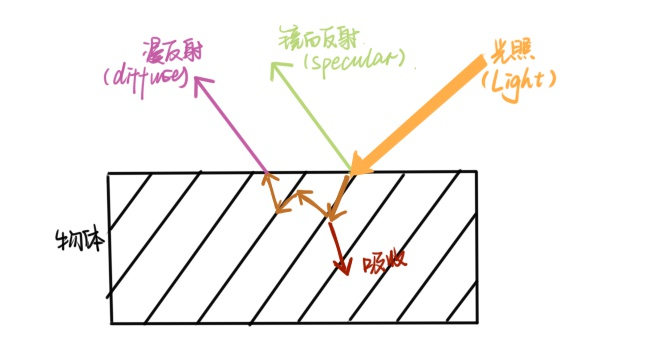 漫反射
(diffuse)
镜面反射
(specular).
光照
(Light)
物体
吸收